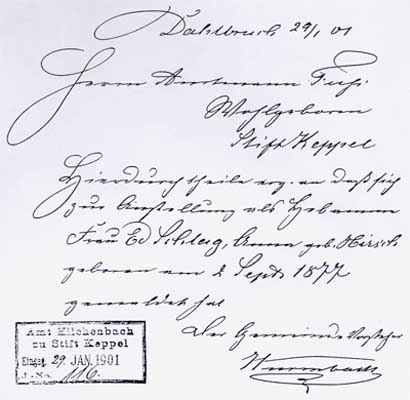 Dahlbruch 29/1 01
Herrn Amtmann Fuhs
Wohlgeboren
Stift Keppel
Hierdurch theile erg. an daß sich
zur Anstellung als Hebamme
Frau Ed Schlag, Anna geb. Hirsch
geboren am 2 Sept. 1877
gemeldet hat
Der Gemeinde Vorsteher
Wurmbach
Amt Hilchenbach
zu Stift Keppel
Eingeg. 29. JAN. 1901
J.-No. 116.